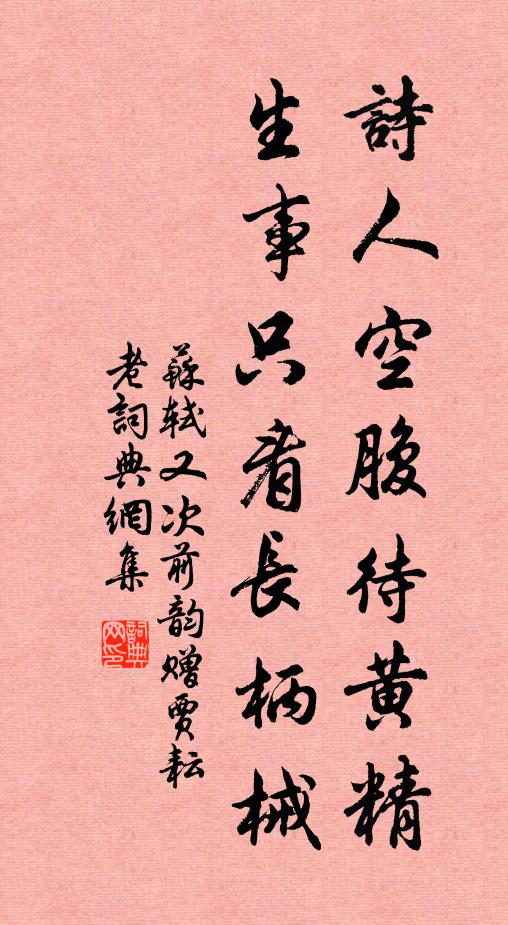 詩人空腹待黄精
生事只看長柄械
蘇軾又次前韵贈賈耘
老詞典網集
詞典
网印